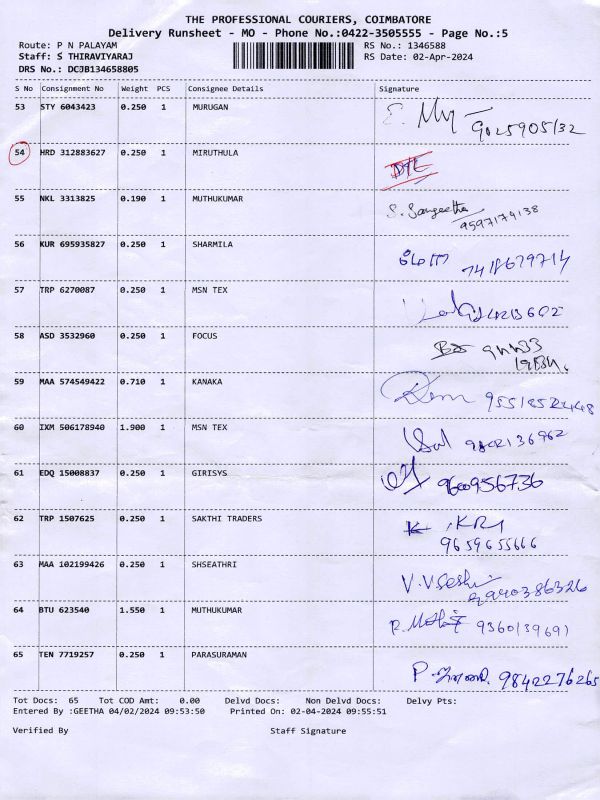 THE PROFESSIONAL COURIERS, COIMBATORE
Delivery Runsheet - MO - Phone No.:0422-3505555 - Page No.:5
Route: P N PALAYAM
RS No.: 1346588
Staff: S THIRAVIYARAJ
RS Date: 02-Apr-2024
DRS No.: DCJB134658805
S No Consignment No Weight PCS Consignee Details Signature
53 STY 6043423 0.250 1 MURUGAN
54 HRD 312883627 0.250 1 MIRUTHULA
55 NKL 3313825 0.190 1 MUTHUKUMAR S. Sangeetha
9597179138
56 KUR 695935827 0.250 1 SHARMILA 7418679714
57 TRP 6270087 0.250 1 MSN TEX
58 ASD 3532960 0.250 1 FOCUS
59 MAA 574549422 0.710 1 KANAKA
60 IXM 506178940 1.900 1 MSN TEX
61 EDQ 15008837 0.250 1 GIRISYS 9600956736
62 TRP 1507625 0.250 1 SAKTHI TRADERS
9659655666
63 MAA 102199426 0.250 1 SHSEATHRI V. V Seshi
64 BTU 623540 1.550 1 MUTHUKUMAR 9360139691
65 TEN 7719257 0.250 1 PARASURAMAN 9842276265
Tot Docs: 65 Tot COD Amt: 0.00 Delvd Docs: Non Delvd Docs: Delvy Pts:
Entered By :GEETHA 04/02/2024 09:53:50 Printed On: 02-04-2024 09:55:51
Verified By Staff Signature